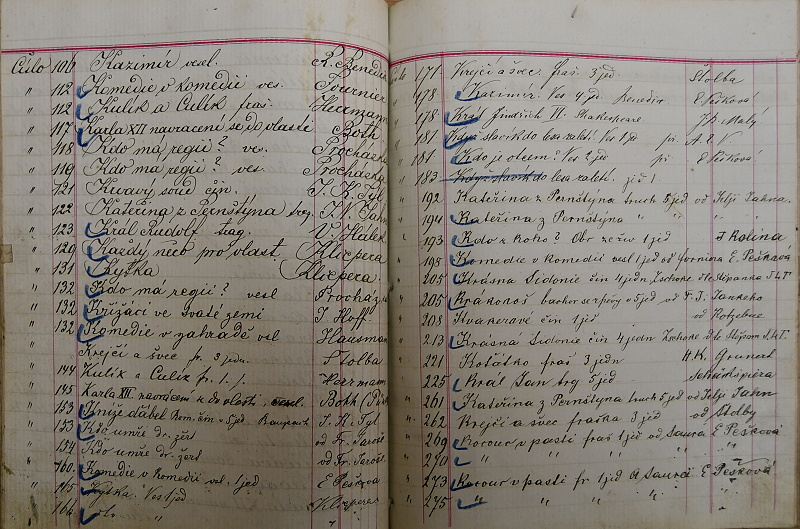 Číslo 106 Kazimír vesel. R. Benedix
" 112 Komedie v komedii ves. Fournier
" 112 Kulík a Culík fraš. Herrmann
" 117 Karla XII navracení se do vlasti Both
" 118 Kdo má regii? ves. Procházka
" 119 Kdo má regii? ves. Procházka
" 121 Krvavý soud čin. J. K. Tyl
" 122 Kateřina z Pernštýna trag. J. V. Jahn
" 123 Král Rudolf trag. V. Hálek
" 129 Každý něco pro vlast Klicpera
" 131 Kytka Klicpera
" 132 Kdo má regii? vesl Procházka
" 132 Křižáci ve svaté zemi J. Hoff
" 132 Komedie v zahradě vsl Hausmann
Krejčí a švec fr. 3 jedn. Štolba
" 144 Kulík a Culík fr. 1. j. Harrmann
" 145 Karla XII. navrácení se do vlasti, vesel. Both
" 153 Kníže ďábel Rom. čin. v 5 jed. Raupach J. K. Tyl
" 153 Kdo umře dr. žert od Fr. Jeřáb.
" 154 Kdo umře dr. žert od Fr. Jeřáb.
" 160 Komedie v Komedii vsl. 1jed E Pešková
" 165 Kytka. Ves 1jed Klicpera
" 166 "
171 Krejčí a švec. fraš. 3 jd Štolba
" 178 Kazimír. Ves 4 jd. Benedix E Pešková
" 178 Král Jindřich VI. Shakespeare Jk. Malý
" 181 Když slavík do lesa zaletí. Ves 1jd při A. E V
" 181 Kdo je otcem? Ves 2 jed při E Pešková
" 183 Když slavík do lesa zaletí. jed 1.
" 192 Kateřina z Pernštýna truch 5 jed od Jilji Jahna.
" 194 Kateřina z Pernštýna " " " "
" 193 Kdo z koho? Obr ze živ 1jed J Kolína
" 195 Komedie v Komedii vesl 1jed od Forniera E. Pešková
" 205 Krásna Sidonie čin 4 jedn Zschoke dle Štěpánka J. k. T
" 205 Krakonoš bachor se zpěvy v 5jed od F. J. Tankeho
" 208 Kvakerové čin 1jed od Kotzebue
" 213 Krásná Sidonie čin 4 jedn Zschoke dle Štěpan J. k. T.
" 221 Koťátko fraš 3 jedn A K. Grunert
" 225 Král Jan trg 5 jed Schäkspéra
" 261 Kateřina z Pernštýna truch 5 jed od Jilji Jahn
" 262 Krejčí a švec fraška 3 jed od Štolby
" 269 Kocour v pasti fraš 1jed od Saura E Pešková
" 270 " " " "
" 273 Kocour v pasti fr 1 jed A Saura E Pešková
" 275 " " " "